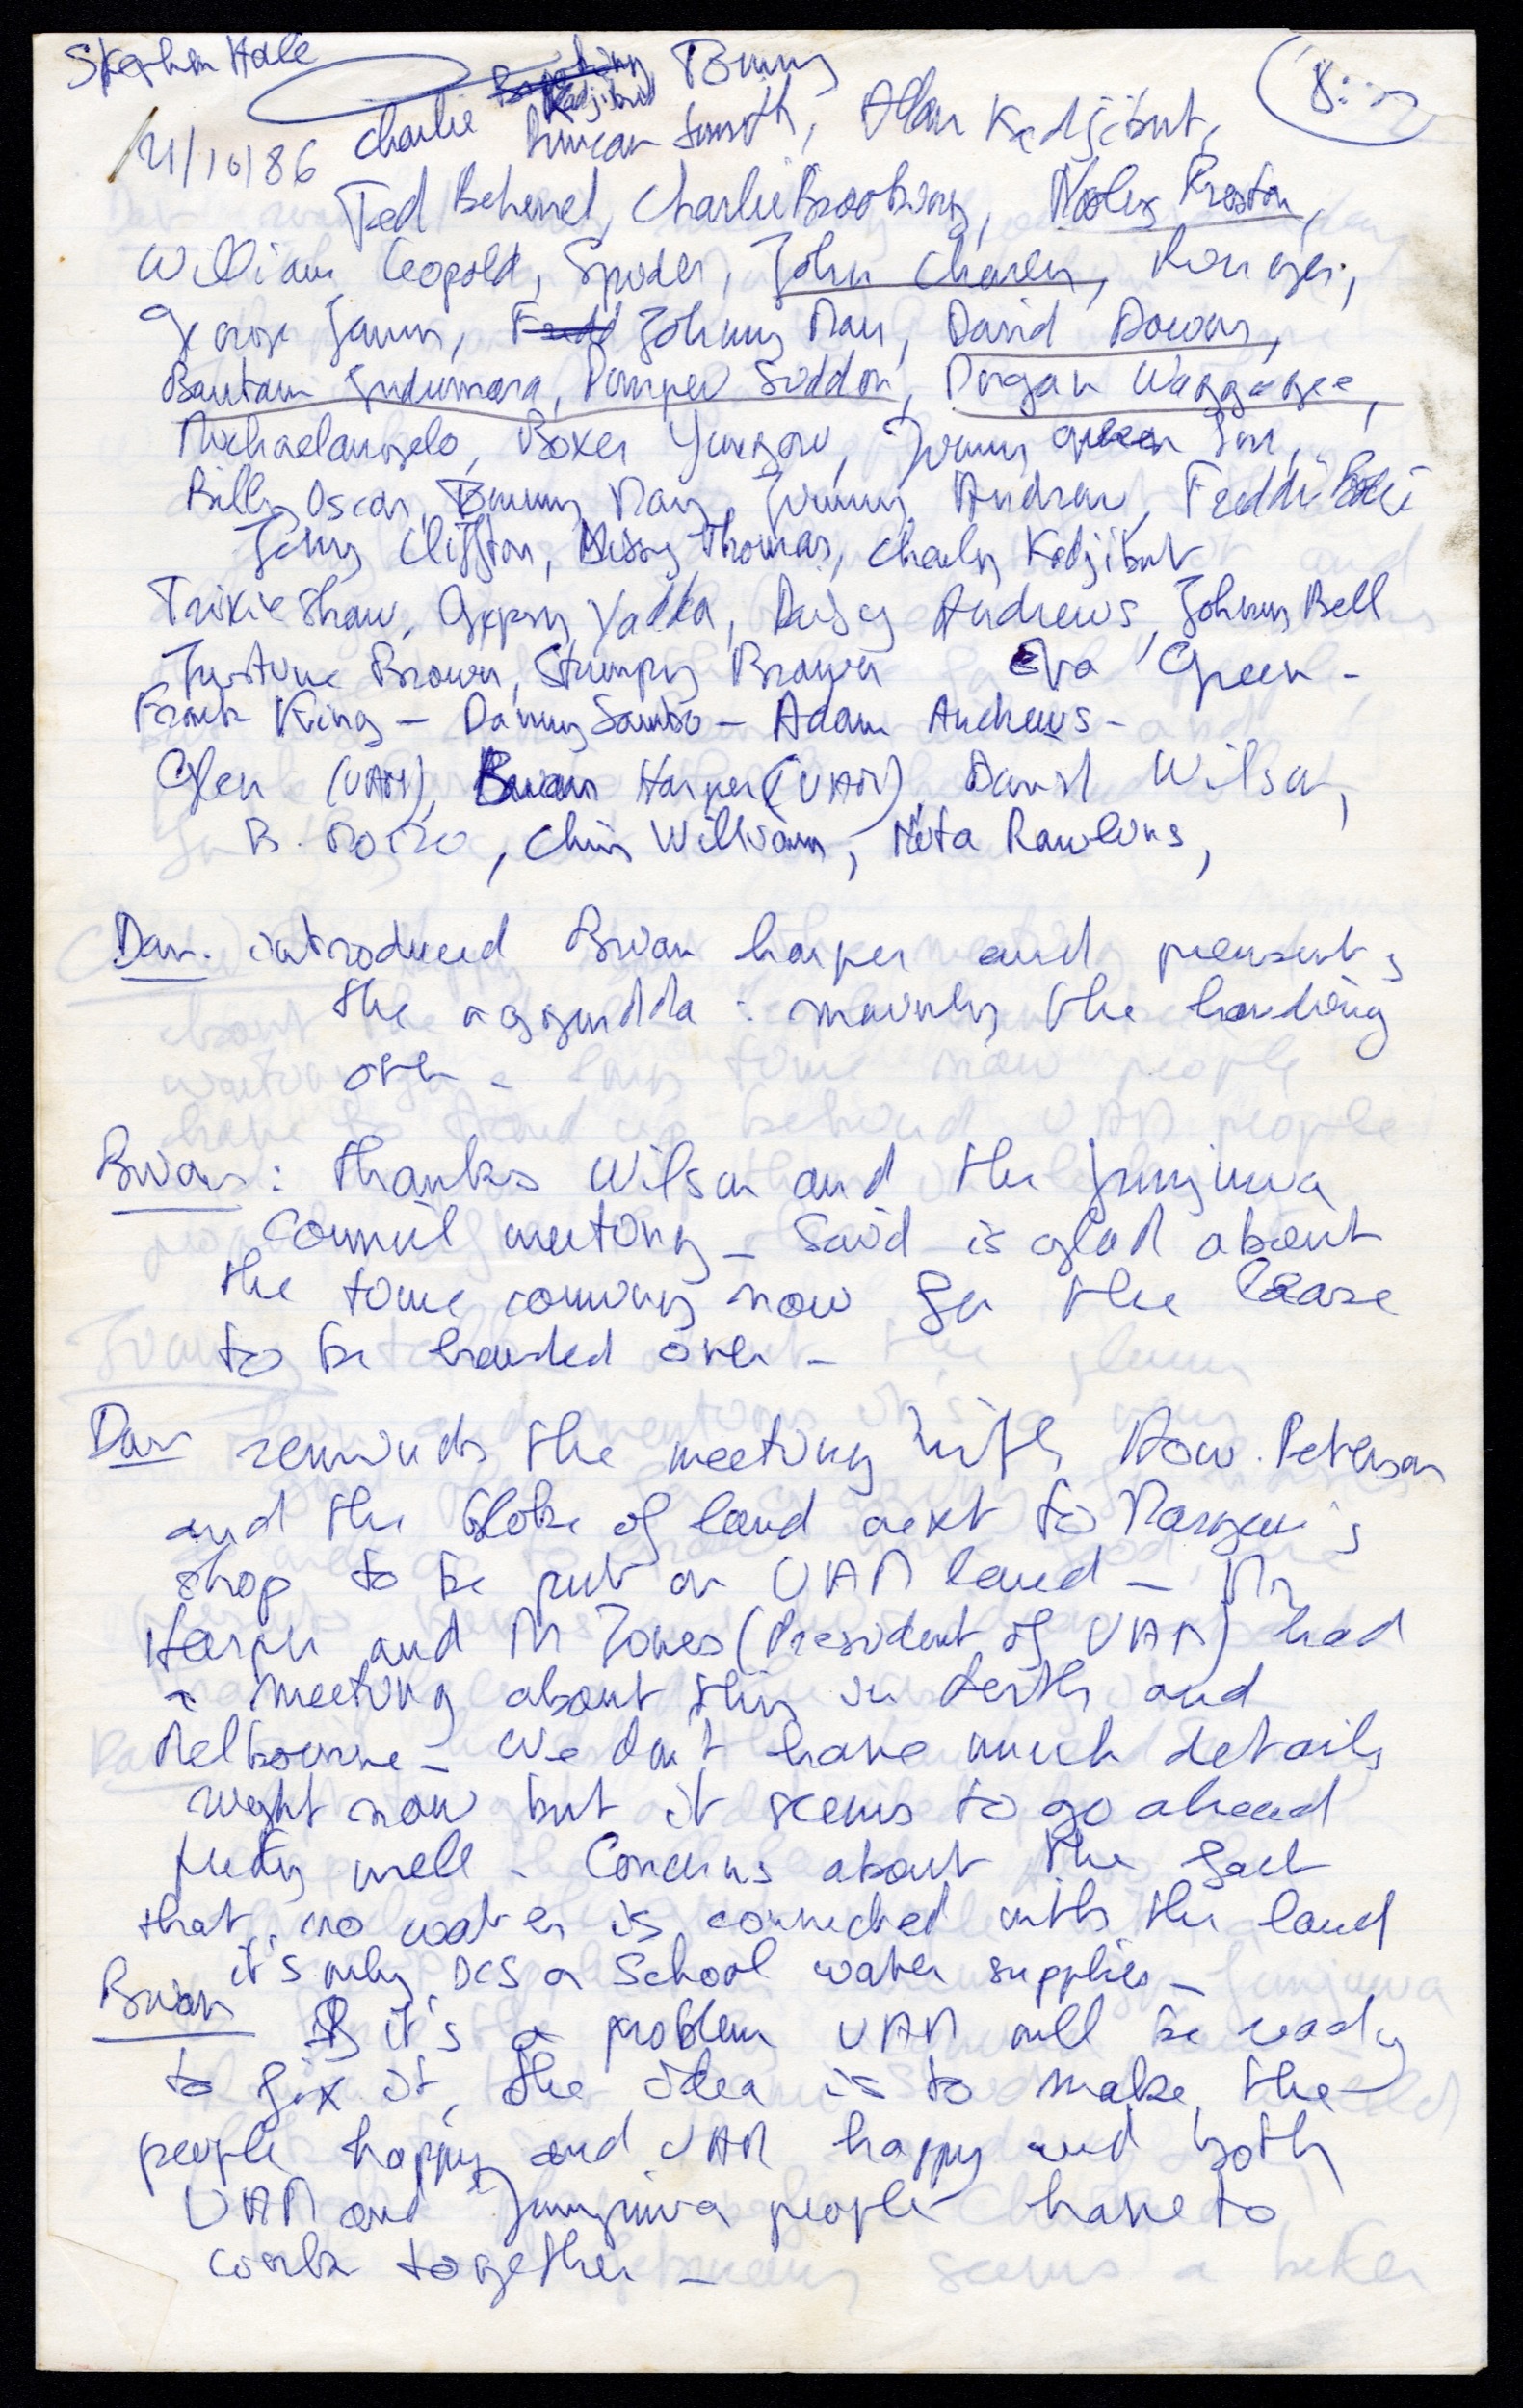 Stephen Hale
Tommy
8:
21/10/86 Charlie Kadjibut Duncan Smith, Alan Kadjibut,
Ted Beharrel, Charlie Brooking, Nooley Preston,
William Leopold, Spider, John Charley,
George James, Johnny Man, David Downs,
Bantam Pumper Siddon, Dingan
Michaelangelo, Boxer Yungow, Jimmy green
Billy Oscar, Tommy May, Jimmy Andrew, Freddie
Clifton, Missy Thomas, Charly Kadjibut
Trixie Shaw, Gypsy Yadda, Daisy Andrews, Johnny Bell
Justine Brown, Stumpy Brown Eva Green -
Frank King - Danny Sambo - Adam Andrews -
Glen (UAM), Brian Harper (UAM), Daniel Wilson,
Chris William, Nita Rawlins,
Dan. introduced Brian harper and presents
the aggendda : mainly the handing
over -
Brian : thanks Wilson and the Junjuwa
Council meeting - Said is glad about
the time coming now for the lease
to be handed over -
Dan reminds the meeting with Hon. Peterson
and the bloke of land next to
shop to be put on UAM land - Mr
Harper and Mr Jones (President of UAM) had
a meeting about this in Perth and
Melbourne - We don't have much details
right now but it seems to go ahead
pretty well - Concerns about the fact
that, no water is connected with the land
it's only DCS or School water supplies -
Brian If it's a problem UAM will be ready
to fix it, the idea is to make the
people happy and UAM happy and both
UAM and Junjuwa people have to
work together -